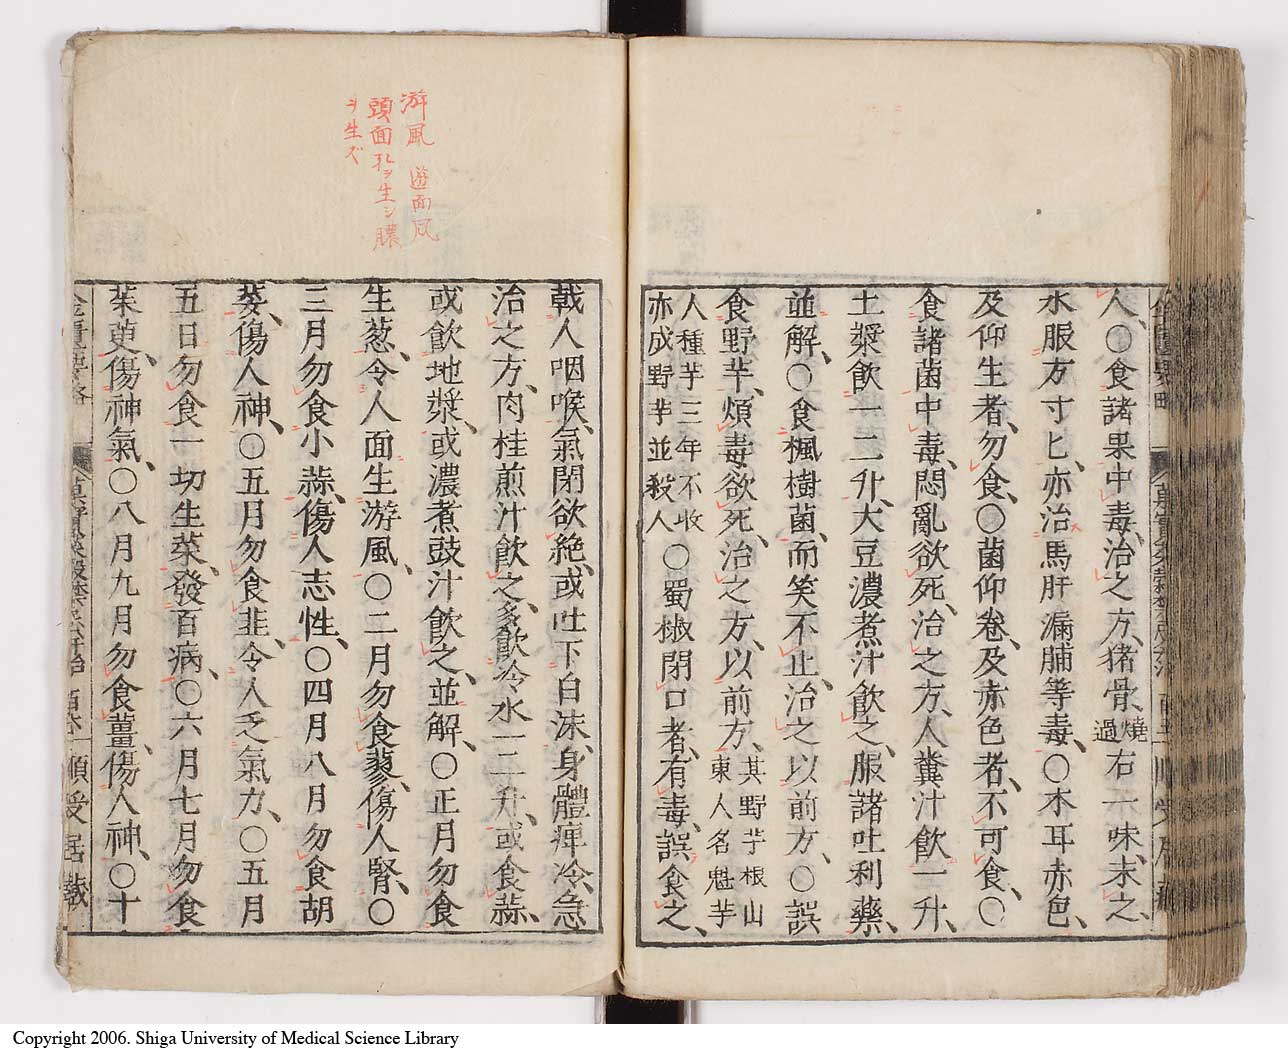 人、○食諸果中毒、治之方、猪骨、燒過右一味、末之、
水服方寸匕、亦治馬肝漏脯等毒、○木耳赤色、
及仰生者、勿食、○菌仰卷、及赤色者、不可食、○
食諸菌中毒、悶亂欲死、治之方、人糞汁飲一升、
土漿飲一二升、大豆濃煮汁飲之、服諸吐利藥、
並解、○食楓樹菌、而笑不止、治之以前方、○誤
食野芋、煩毒欲死、治之方、以前方、其野芋根山東人名魁芋
人種芋三年不收亦成野芋並殺人○蜀椒閉口者、有毒、誤食之、
戟人咽喉、氣閉欲絶、或吐下白沫、身體痺冷、急
治之方、肉桂煎汁飲之、多飲冷水一二升、或食蒜、
或飲地漿、或濃煮豉汁飲之、並解、○正月勿食
生葱、令人面生游風、○二月勿食蓼、傷人腎、○
三月勿食小蒜、傷人志性、○四月八月勿食胡
荽、傷人神、○五月勿食韭、令人乏氣力、○五月
五日勿食一切生菜、發百病、○六月七月勿食
茱萸、傷神氣、○八月九月勿食薑、傷人神、○十
金匱要略 順受居藏
游風 遊面風
頭面孔ヲ生シ膿
ヲ生ズ
Copyright 2006. Shiga University of Medical Science Library